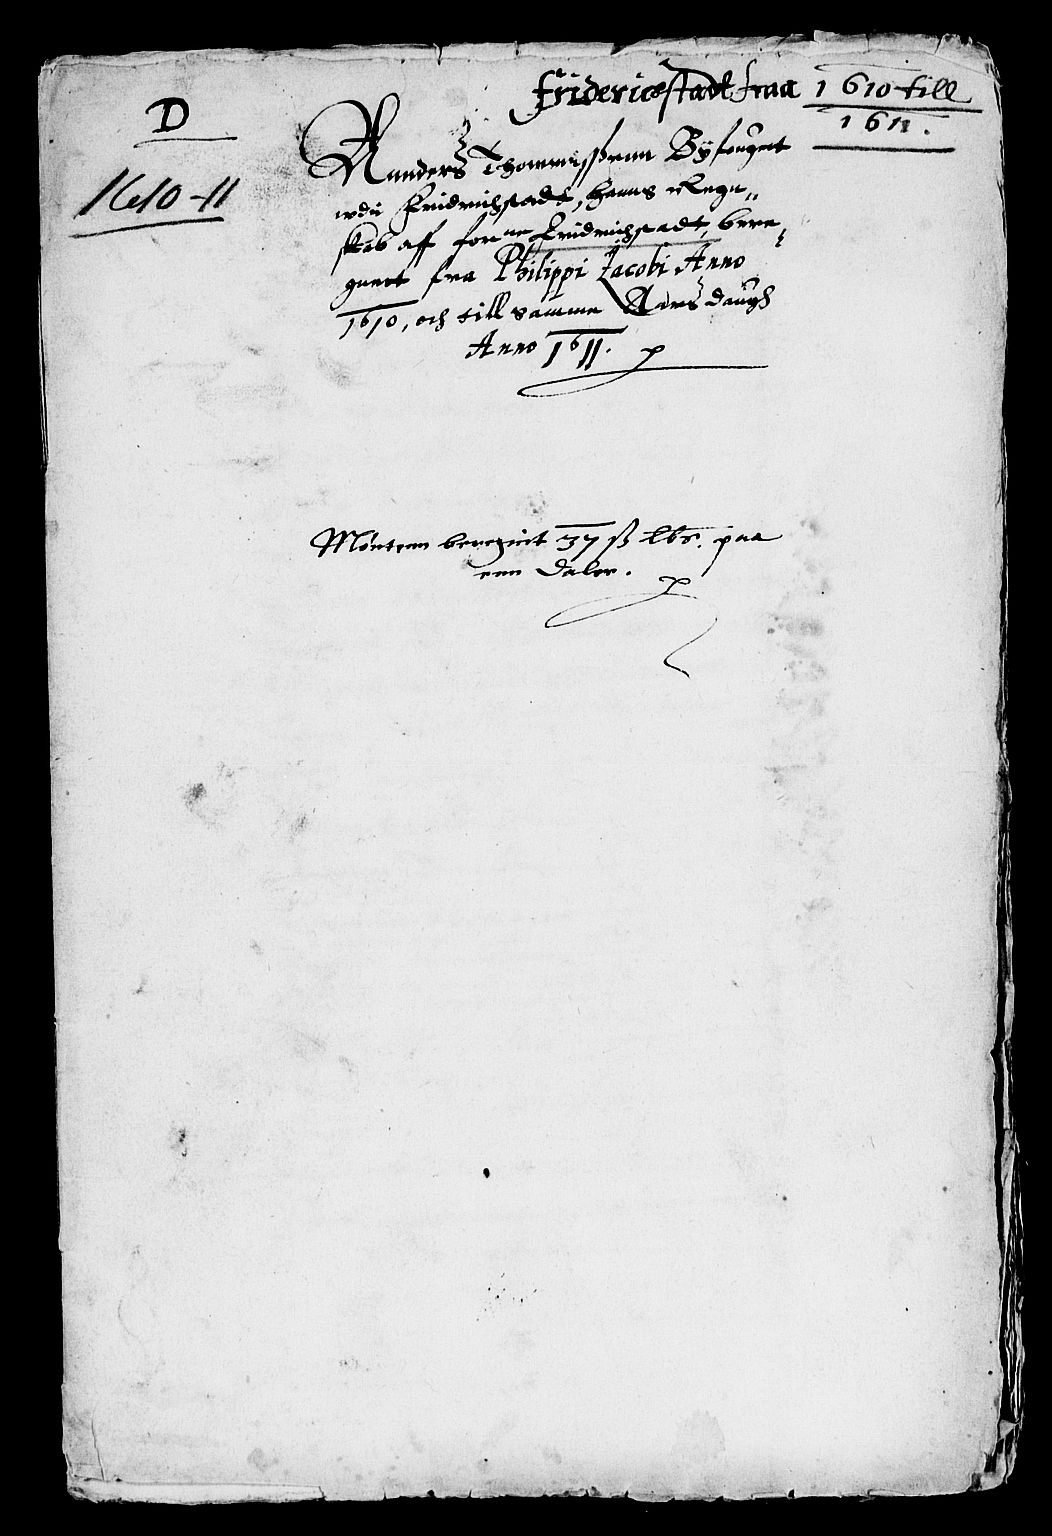 Fridericæstadt fraa 1610 till
1611.
D
1610-11
Anders Thommissenn Byfougett
wdi Fridrichstadt, hanns Regn„
skab aff forne Fridrichstadt, bere„
gnett fra Philippi Jacobi Anno
1610, och till samme Aars daugh
Anno 1611.
Møntenn beregnit 37 ß lbs. paa
enn Daler.